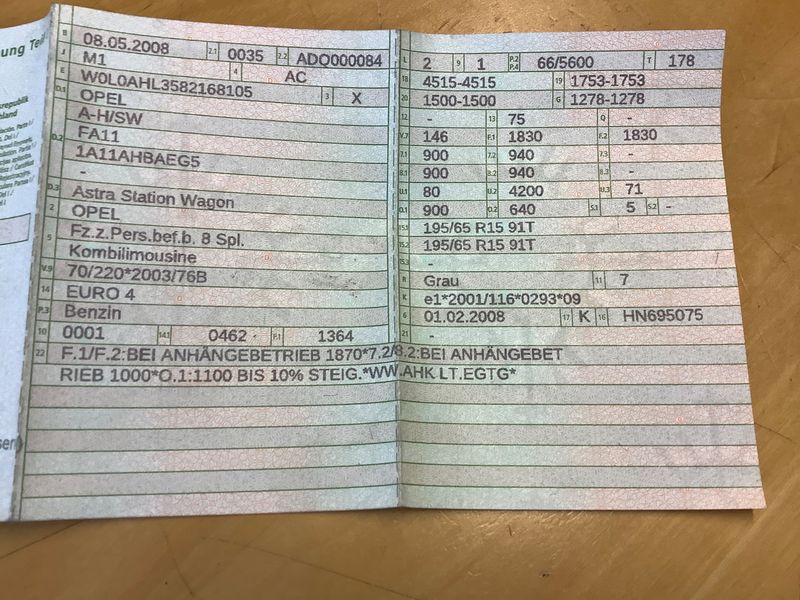 ung Teil
B 08.05.2008 2.1 0035 2.2 ADO000084
J M1 4 AC
E W0L0AHL3582168105 3 X
D.1 OPEL
A-H/SW
D.2 FA11
1A11AHBAEG5
-
D.3 Astra Station Wagon
2 OPEL
5 Fz.z.Pers.bef.b. 8 Spl.
Kombilimousine
V.9 70/220*2003/76B
14 EURO 4
P.3 Benzin
10 0001 14.1 0462 P.1 1364
L 2 9 1 P.2 P.4 66/5600 T 178
18 4515-4515 19 1753-1753
20 1500-1500 G 1278-1278
12 - 13 75 Q -
V.7 146 F.1 1830 F.2 1830
7.1 900 7.2 940 7.3 -
8.1 900 8.2 940 8.3 -
U.1 80 U.2 4200 U.3 71
O.1 900 O.2 640 S.1 5 S.2 -
15.1 195/65 R15 91T
15.2 195/65 R15 91T
15.3 -
R Grau 11 7
K e1*2001/116*0293*09
6 01.02.2008 17 K 16 HN695075
21 -
22 F.1/F.2:BEI ANHÄNGEBETRIEB 1870*7.2/8.2:BEI ANHÄNGEBET
RIEB 1000*O.1:1100 BIS 10% STEIG.*WW.AHK LT.EGTG*